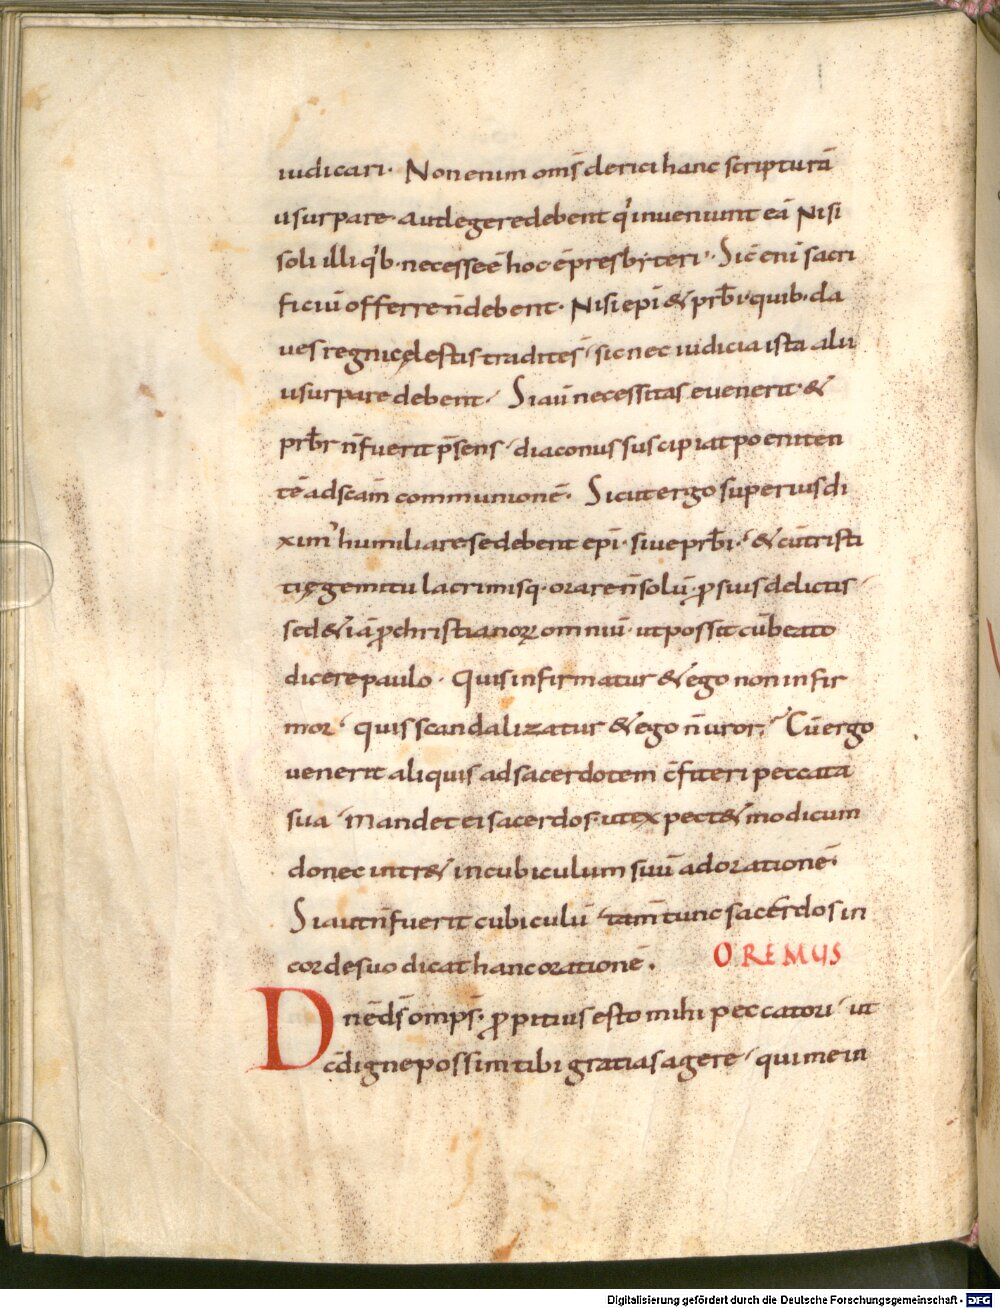 iudicari. Non enim om̅s clerici hanc scripturā
usurpare. aut legere debent q'inveniunt eā Nisi
soli illi q'b. necesse ē hoc ē presbyteri. Sic̅ eni̅ sacri
ficiū offerre n̅ debent. Nisi epi̅ & prb̅i. quib. cla
ues regni cęlestis traditę s̅. sic nec iudicia ista alii
usurpare debent. Si au̅ necessitas evenerit. &
prb̅r n̅ fuerit p̅sens. diaconus suscipiat poeniten
tē ad sc̅am communionē. Sicut ergo superius di
xim' humiliare se debent epi̅. sive prb̅i. & cū tristi
tię gemitu lacrimisq. orare n̅ solū. ꝓ suis delictis
sed & iā ꝓ christianoꝝ omniū. ut possit cū beato
dicere paulo. Quis infirmatur & ego non infir
mor. quis scandalizatur & ego n̅ uror. Cū ergo
venerit aliquis ad sacerdotem c̅fiteri peccata
sua. mandet ei sacerdos. ut expect& modicum
donec intr& in cubiculum suū ad orationē.
Si aut̅ n̅ fuerit cubiculū. tam̅ tunc sacerdos in
corde suo dicat hanc orationē.
OREMUS
Dn̅e ds̅ omps̅. ꝓpitius esto mihi peccatori. ut
c̅digne possim tibi gratias agere. qui me in
Digitalisierung gefördert durch die Deutsche Forschungsgemeinschaft - DFG